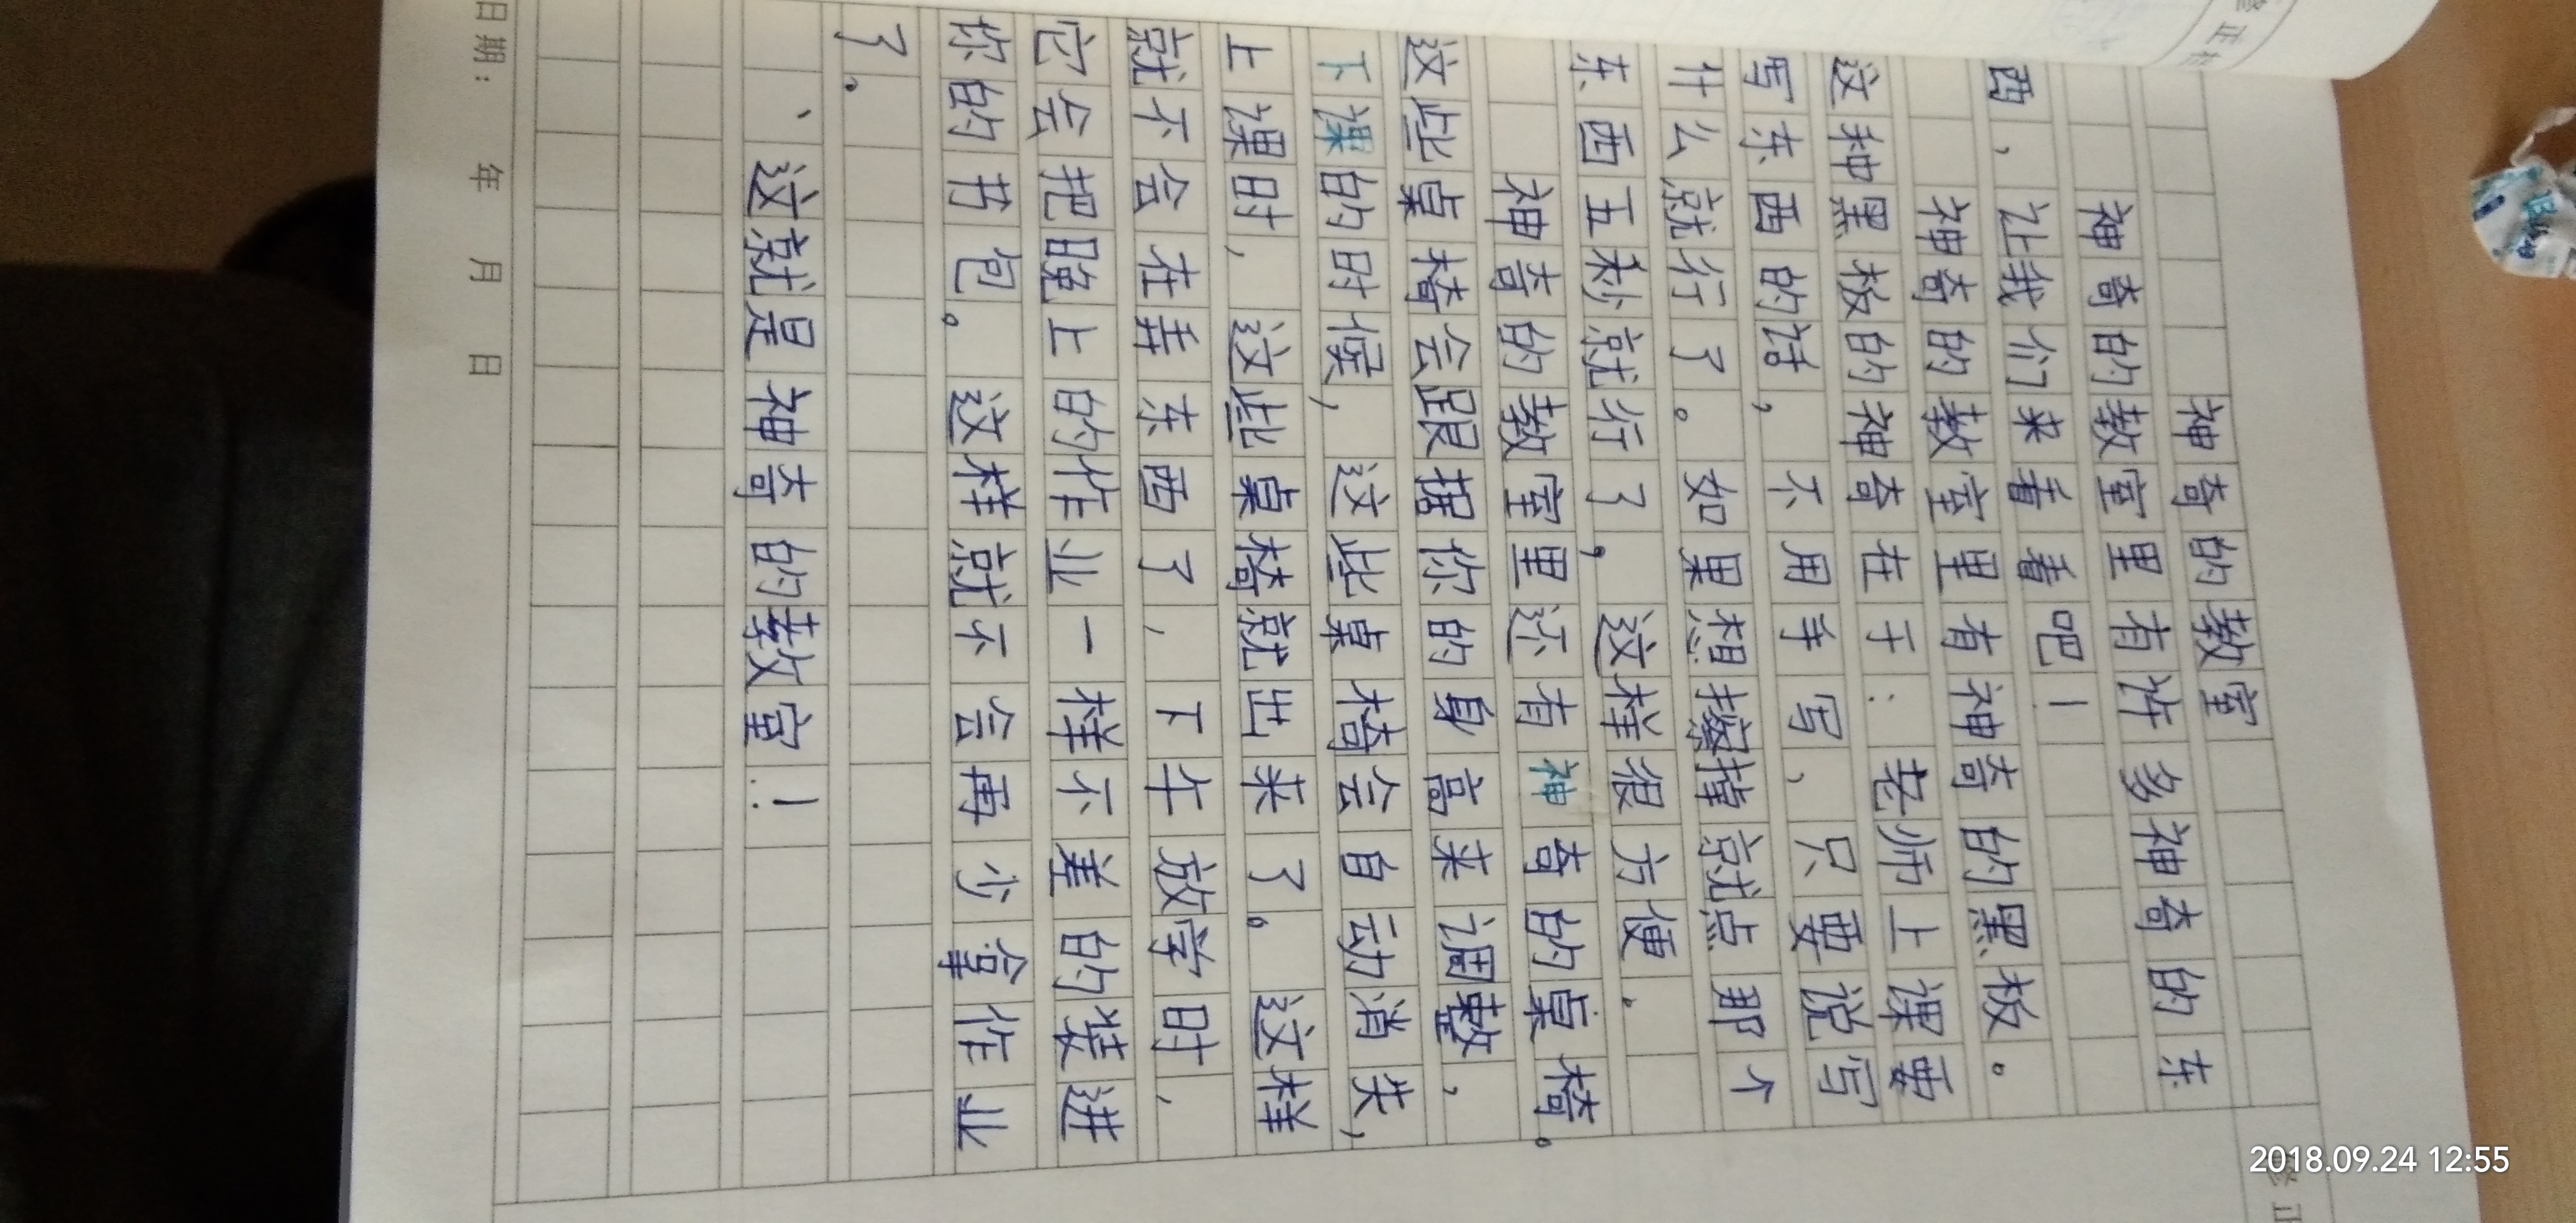 神奇的教室
神奇的教室里有许多神奇的东
西，让我们来看看吧！
神奇的教室里有神奇的黑板。
这种黑板的神奇在于：老师上课要
写东西的话，不用手写，只要说写
什么就行了。如果想擦掉就点那个
东西五秒就行了，这样很方便。
神奇的教室里还有神奇的桌椅。
这些桌椅会跟据你的身高来调整，
下课的时候，这些桌椅会自动消失，
上课时，这些桌椅就出来了。这样
就不会在弄东西了，下午放学时，
它会把晚上的作业一样不差的装进
你的书包。这样就不会再少拿作业
了。
、这就是神奇的教室！
日期： 年 月 日
修正栏
修正
2018.09.24 12:55